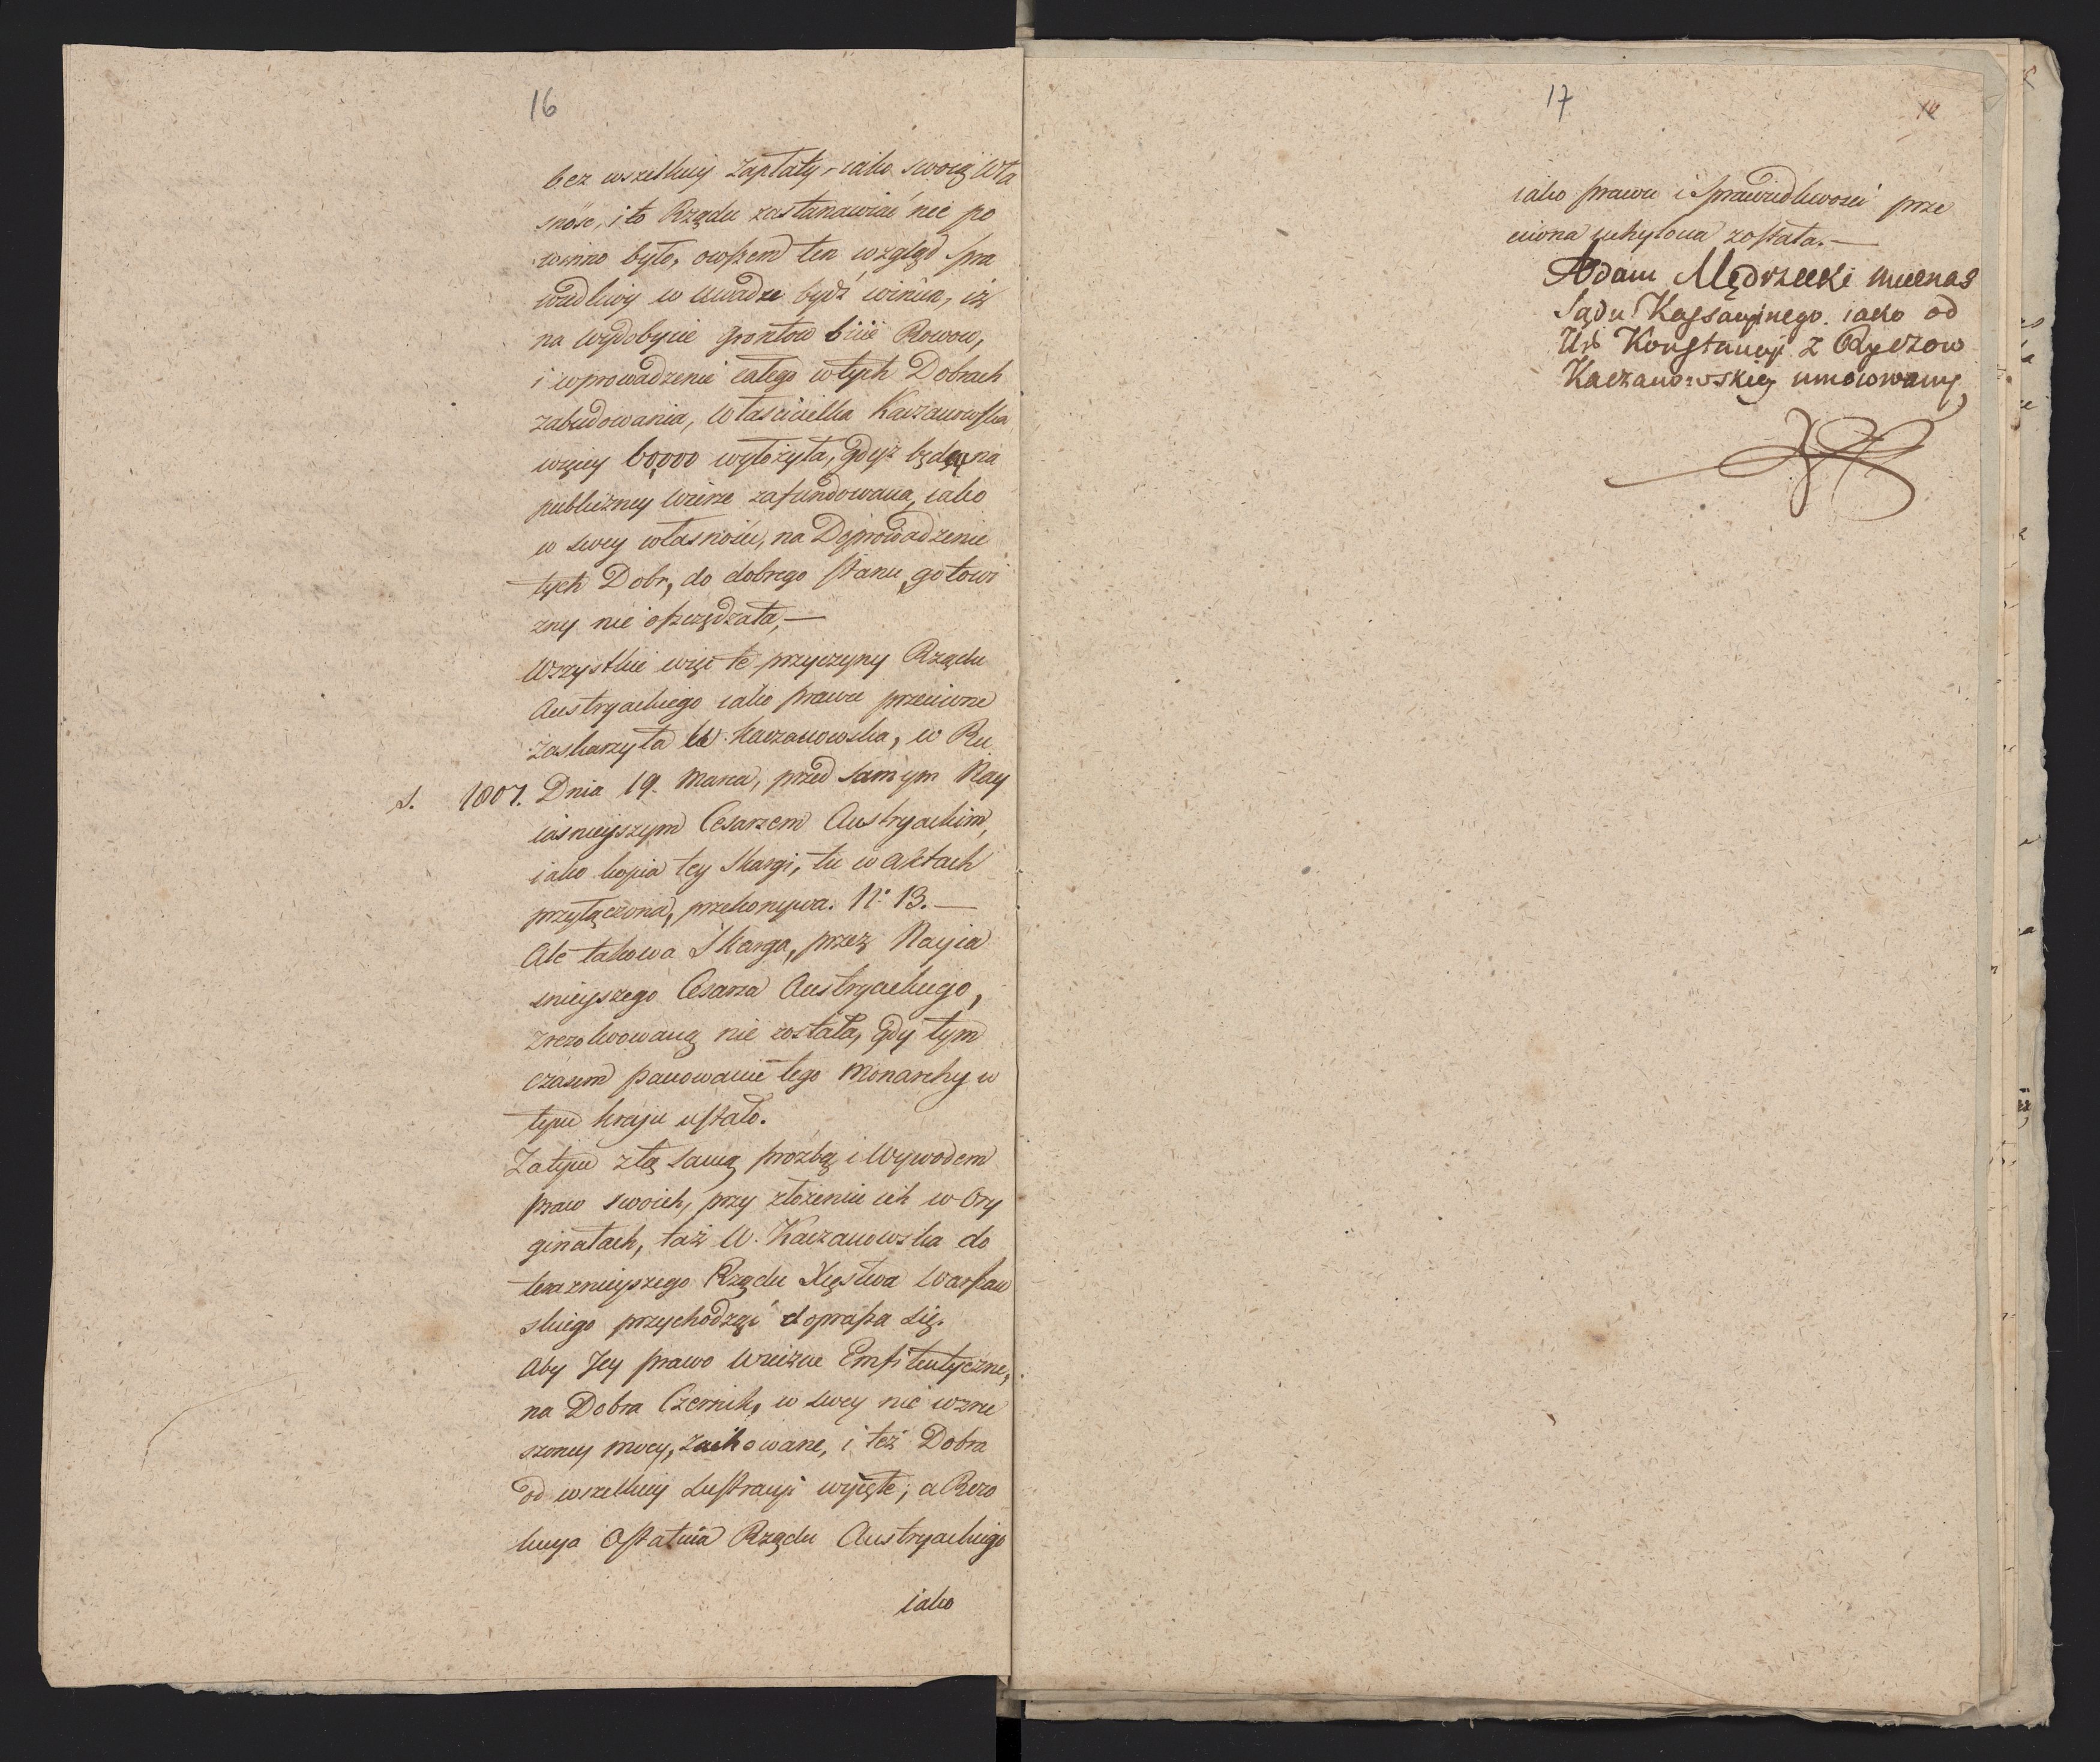 16
bez wszelkiey zapłaty, iako swoią Wła
sność, i to Rządu zastanawiać nie po
winno było, owszem ten wzgląd spra
wiedliwy w uwadze bydź winien, iż
na wydobycie grontow bicie Rowow,
i wprowadzenie całego w tych Dobrach
zabudowania, Właścicielka Kaczanowska
więcey 60,000 wyłożyła, gdyż będąc na
publiczney wierze zafundowana, iako
w swey własności, na Doprowadzenie
tych Dobr, do dobrego stanu, gotowi
zny nie oszczędzała,—
Wszystkie więc te przyczyny Rządu
Austryackiego iako prawu przeciwne
zaskarzyła W. Kaczanowska, w Ru
S. 1807. Dnia 19. Marca, przed samym Nay
iasnieyszym Cesarzem Austryackim,
iako kopia tey Skargi, tu w aktach
przyłączona, przekonywa. No 13.—
Ale takowa Skarga, przez Nayia
snieyszego Cesarza Austryackiego,
zrezolwowaną nie została, gdy tym
czasem panowanie tego Monarchy w
tym kraju ustało.
Zatym z tą samą proźbą i Wywodem
praw swoich, przy złożeniu ich w Ory
ginałach, taż W. Kaczanowska do
teraznieyszego Rządu Xięstwa Warszaw
skiego przychodząc doprasza się.
Aby Jey prawo Wieczne Emfiteutyczne,
na Dobra Czernik, w swey nie wzru
szoney mocy, zachowane, i też Dobra
od wszelkiey Lustracyi wyięte, a Rezo
lucya Ostatnia Rządu Austryackiego
iako
17
iako prawu i Sprawiedliwości prze
ciwna uchylona została.—
Adam Mędrzecki Mecenas
Sądu Kassacyinego iako od
Ur Konstancyi z Ryczow
Kaczanowskiey umocowany